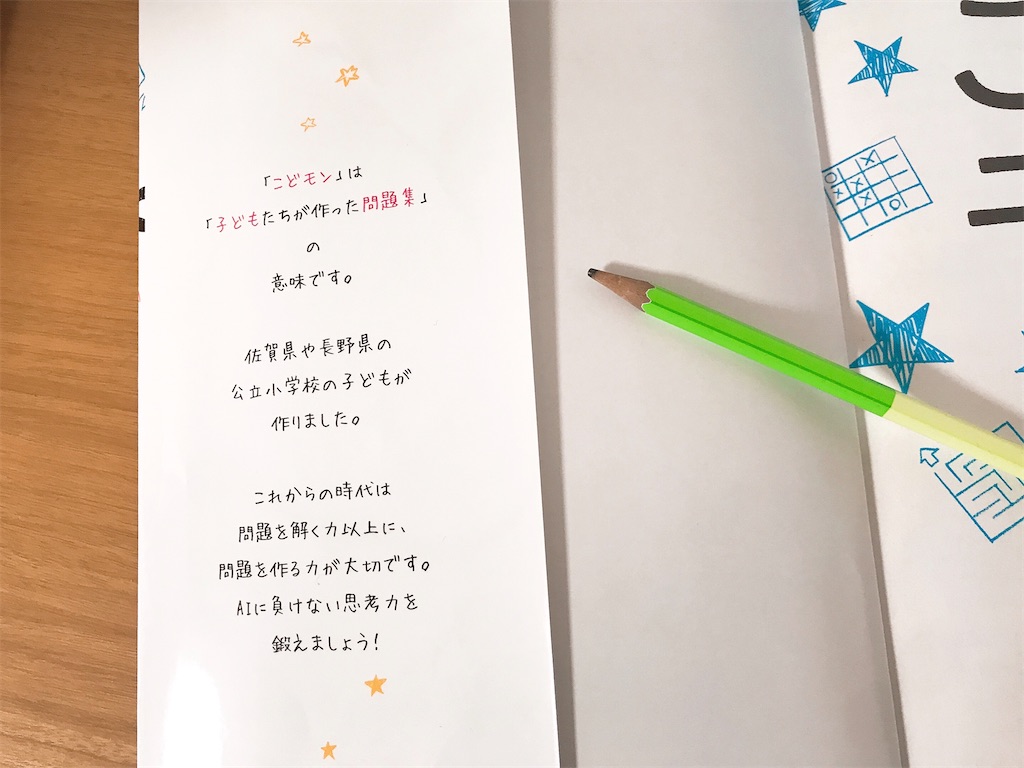 「こどモン」は
「子どもたちが作った問題集」
の
意味です。
佐賀県や長野県の
公立小学校の子どもが
作りました。
これからの時代は
問題を解く力以上に、
問題を作る力が大切です。
AIに負けない思考力を
鍛えましょう!